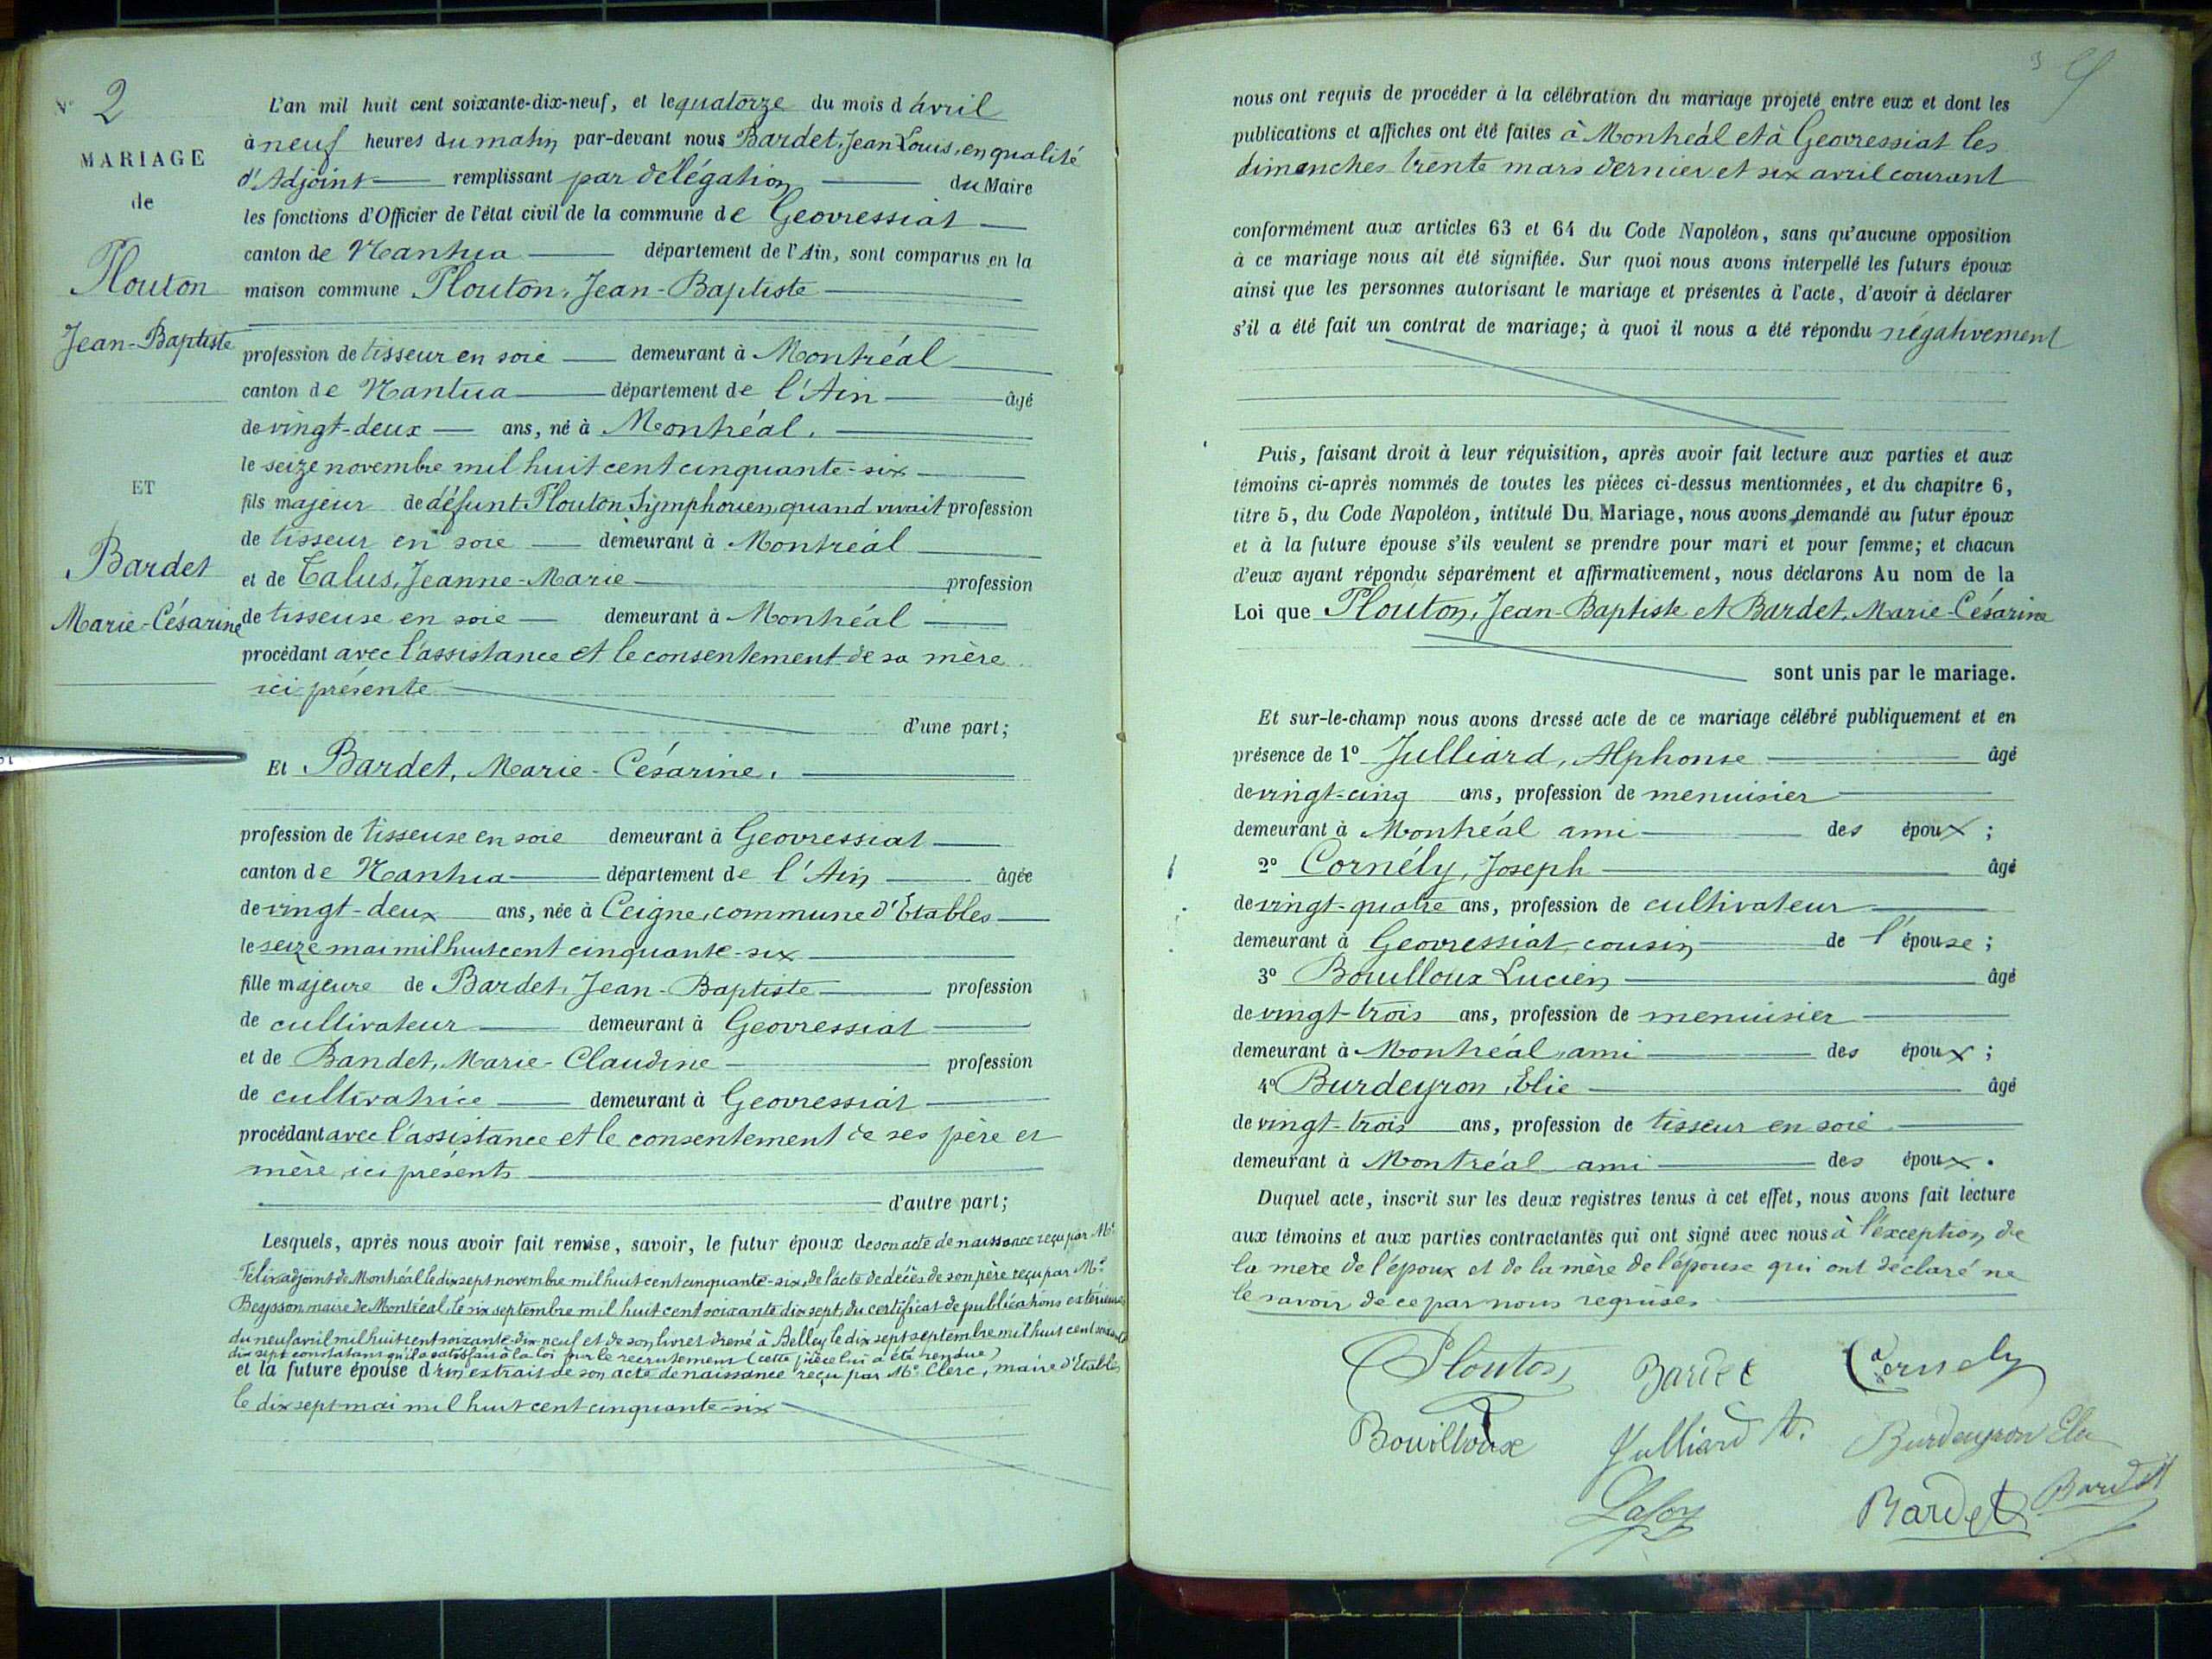 N° 2
MARIAGE
de
Plouton
Jean-Baptiste
ET
Bardet
Marie-Césarine
L'an mil huit cent soixante-dix-neuf, et le quatorze du mois d'avril
à neuf heures du matin par-devant nous Bardet, Jean Louis, en qualité
d'Adjoint remplissant par délégation du Maire
les fonctions d'Officier de l'état civil de la commune de Geovressiat
canton de Nantua département de l'Ain, sont comparus en la
maison commune Plouton, Jean-Baptiste
profession de tisseur en soie demeurant à Montréal
canton de Nantua département de l'Ain âgé
de vingt-deux ans, né à Montréal.
le seize novembre mil huit cent cinquante-six
fils majeur de défunt Plouton Symphorien, quand vivait profession
de tisseur en soie demeurant à Montréal
et de Talus, Jeanne-Marie profession
de tisseuse en soie demeurant à Montréal
procédant avec l'assistance et le consentement de sa mère
ici présente
d'une part;
Et Bardet, Marie-Césarine.
profession de tisseuse en soie demeurant à Geovressiat
canton de Nantua département de l'Ain âgée
de vingt-deux ans, née à Ceigne, commune d'Etables
le seize mai mil huit cent cinquante-six
fille majeure de Bardet, Jean-Baptiste profession
de cultivateur demeurant à Geovressiat
et de Bandet, Marie-Claudine profession
de cultivatrice demeurant à Geovressiat
procédant avec l'assistance et le consentement de ses père et
mère, ici présents
d'autre part;
Lesquels, après nous avoir fait remise, savoir, le futur époux de son acte de naissance reçu par Mr
Felix adjoint de Montréal le dix sept novembre mil huit cent cinquante-six, de l'acte de décès de son père reçu par Mr
Beysson maire de Montréal, le six septembre mil huit cent soixante dix sept, du certificat de publications extérieures
du neuf avril mil huit cent soixante-dix-neuf et de son livret donné à Belley le dix sept septembre mil huit cent soixante
dix sept constatant qu'il a satisfait à la loi sur le recrutement (cette pièce lui a été rendue)
et la future épouse d'un extrait de son acte de naissance reçu par Mr Clerc, maire d'Etables
le dix sept mai mil huit cent cinquante-six
3
nous ont requis de procéder à la célébration du mariage projeté entre eux et dont les
publications et affiches ont été faites à Montréal et à Geovressiat les
dimanches trente mars dernier et six avril courant
conformément aux articles 63 et 64 du Code Napoléon, sans qu'aucune opposition
à ce mariage nous ait été signifiée. Sur quoi nous avons interpellé les futurs époux
ainsi que les personnes autorisant le mariage et présentes à l'acte, d'avoir à déclarer
s'il a été fait un contrat de mariage; à quoi il nous a été répondu négativement
Puis, faisant droit à leur réquisition, après avoir fait lecture aux parties et aux
témoins ci-après nommés de toutes les pièces ci-dessus mentionnées, et du chapitre 6,
titre 5, du Code Napoléon, intitulé Du Mariage, nous avons demandé au futur époux
et à la future épouse s'ils veulent se prendre pour mari et pour femme; et chacun
d'eux ayant répondu séparément et affirmativement, nous déclarons Au nom de la
Loi que Plouton, Jean-Baptiste et Bardet, Marie-Césarine
sont unis par le mariage.
Et sur-le-champ nous avons dressé acte de ce mariage célébré publiquement et en
présence de 1° Julliard, Alphonse âgé
de vingt-cinq ans, profession de menuisier
demeurant à Montréal ami des époux;
2° Cornély, Joseph âgé
de vingt-quatre ans, profession de cultivateur
demeurant à Geovressiat cousin de l'épouse;
3° Bouilloux Lucien âgé
de vingt-trois ans, profession de menuisier
demeurant à Montréal, ami des époux;
4° Burdeyron, Elie âgé
de vingt-trois ans, profession de tisseur en soie
demeurant à Montréal ami des époux.
Duquel acte, inscrit sur les deux registres tenus à cet effet, nous avons fait lecture
aux témoins et aux parties contractantes qui ont signé avec nous à l'exception de
la mère de l'époux et de la mère de l'épouse qui ont déclaré ne
le savoir de ce par nous requises
Plouton Bardet Cornely
Bouilloux Julliard A. Burdeyron Elie
Bardet Bardet